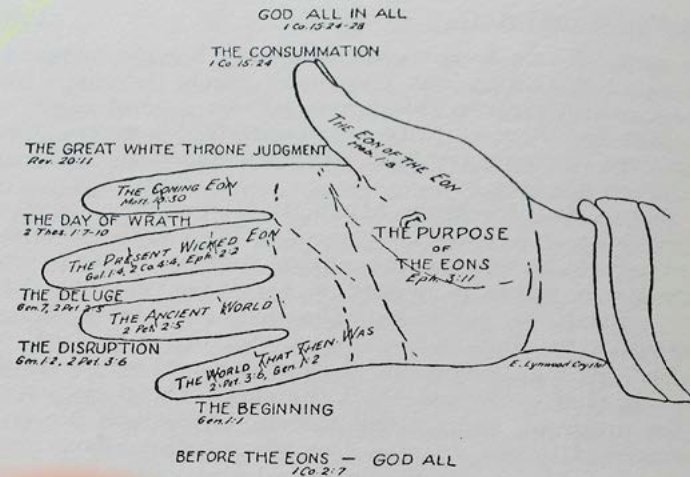 GOD ALL IN ALL
1 Co. 15:24-28
THE CONSUMMATION
1 Co. 15:24
THE EON OF THE EON
Heb. 1:8
THE GREAT WHITE THRONE JUDGMENT
Rev. 20:11
THE COMING EON
THE DAY OF WRATH
2 Thes. 1:7-10
THE PRESENT WICKED EON
Gal. 1:4, 2 Co. 4:4, Eph. 2:2
THE PURPOSE
OF
THE EONS
Eph. 3:11
THE DELUGE
Gen. 7, 2 Pet. 2:5
THE ANCIENT WORLD
2 Pet. 2:5
THE DISRUPTION
Gen. 1:2, 2 Pet. 3:6
THE WORLD THAT THEN WAS
2 Pet. 3:6, Gen. 1:2
E. Lynwood
THE BEGINNING
Gen. 1:1
BEFORE THE EONS — GOD ALL
1 Co. 2:7